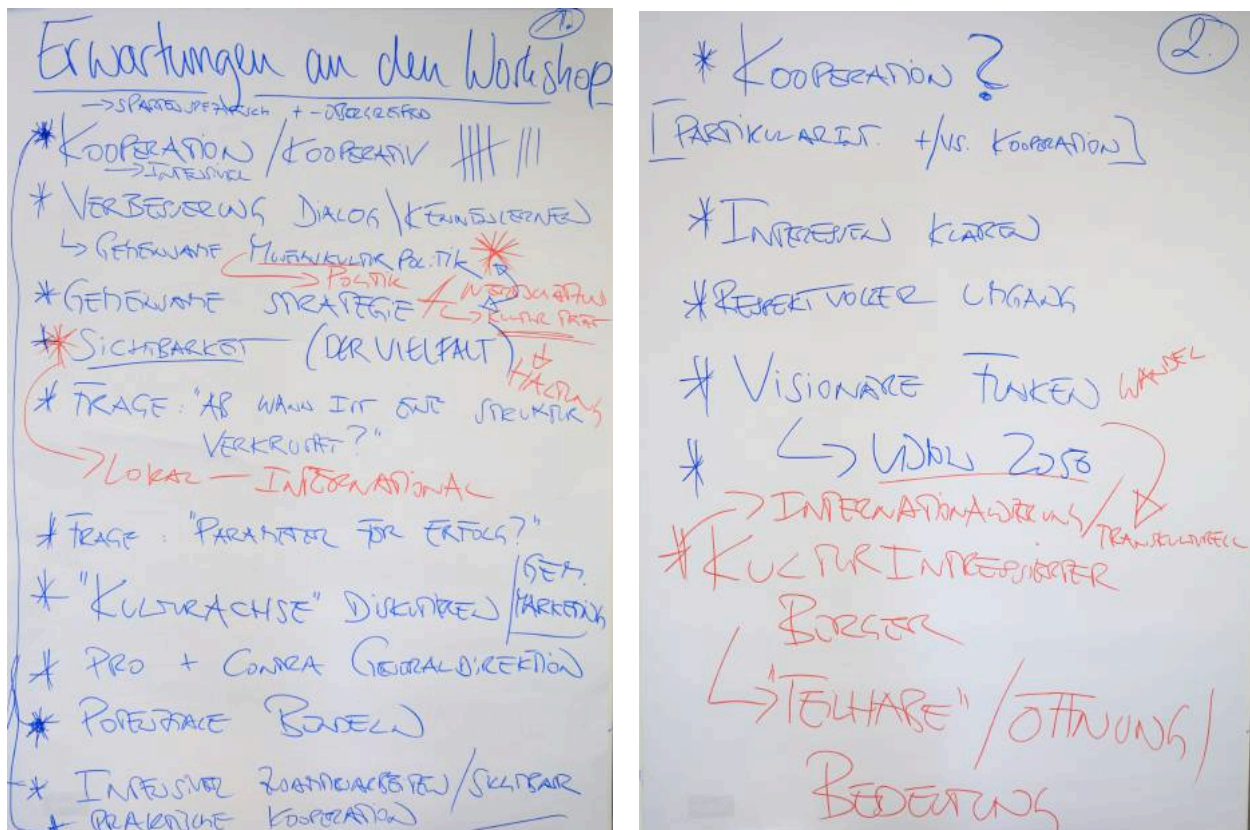 1.
Erwartungen an den Workshop
→ SPARTENSPEZIFISCH + -ÜBERGREIFEND
* KOOPERATION / KOOPERATIV |||| |||
→ INTENSIVER
* VERBESSERUNG DIALOG \ KENNENLERNEN
↳ GEMEINSAME MUSEUMKULTUR POLITIK *
→ POLITIK
* GEMEINSAME STRATEGIE
* SICHTBARKEIT (DER VIELFALT)
HALTUNG
* FRAGE: "AB WANN IST EINE STRUKTUR
VERKRUSTET?"
→ LOKAL — INTERNATIONAL
* FRAGE: "PARAMETER FÜR ERFOLG?"
* "KULTURACHSE" DISKUTIEREN / GEM. MARKETING
* PRO + CONTRA GENERALDIREKTION
* POTENZIALE BÜNDELN
* INTENSIVER ZUSAMMENARBEITEN / SICHTBAR
+ PRAKTISCHE KOOPERATION
2.
* KOOPERATION ?
[PARTIKULARINT. +/VS. KOOPERATION]
* INTERESSEN KLÄREN
* RESPEKTVOLLER UMGANG
* VISIONÄRE FUNKEN WANDEL
* ↳ 2050
→ INTERNATIONALISIERUNG /
TRANSKULTURELL
* KULTURINTERESSIERTER
BÜRGER
↳ "TEILHABE" / ÖFFNUNG /
BEDEUTUNG